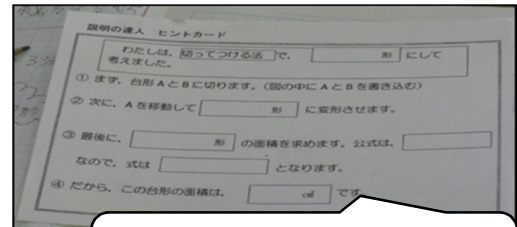 説明の達人 ヒントカード
わたしは、切ってつける法で、 形にして
考えました。
① まず、台形AとBに切ります。(図の中にAとBを書き込む)
② 次に、Aを移動して 形 に変形させます。
③ 最後に、 形 の面積を求めます。公式は、
なので、式は となります。
④ だから、この台形の面積は、 ㎠ です。